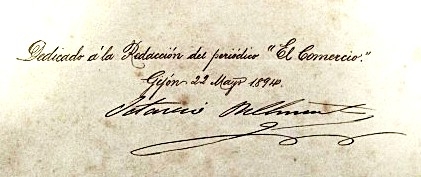 Dedicado á la Redacción del periódico "El Comercio."
Gijón 22 Mayo 1894.
Octavio Bellmunt